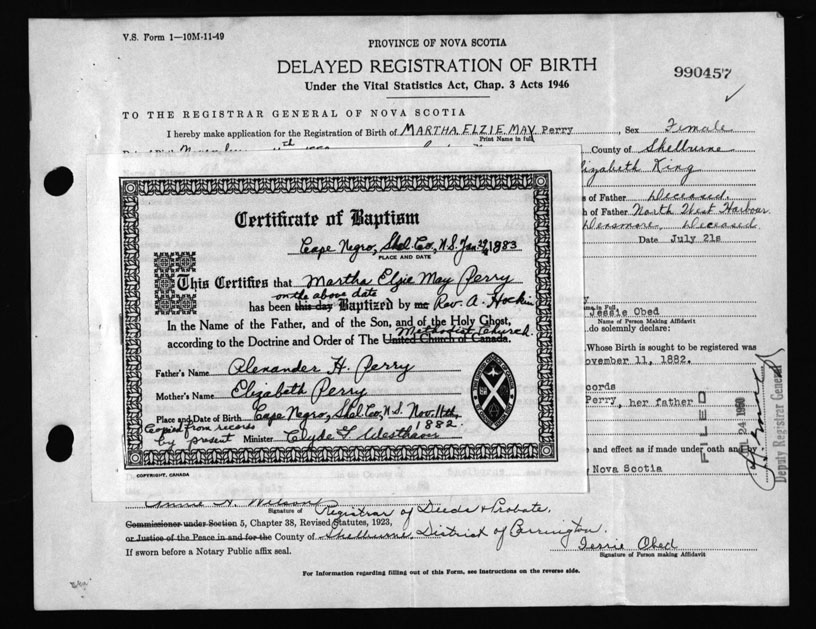 V.S. Form 1—10M-11-49
PROVINCE OF NOVA SCOTIA
DELAYED REGISTRATION OF BIRTH
Under the Vital Statistics Act, Chap. 3 Acts 1946
990457
TO THE REGISTRAR GENERAL OF NOVA SCOTIA
I hereby make application for the Registration of Birth of MARTHA ELZIE MAY Perry, Sex Female
Print Name in full
County of Shelburne
Elizabeth King
of Father Deceased
of Father North West Harbour
Densmore, Deceased
Date July 21s
Certificate of Baptism
Cape Negro, Shel. Co., N.S. Jan 29, 1883
PLACE AND DATE
This Certifies that Martha Elzie May Perry
on the above date
has been this day Baptized by me Rev. A. Hockin
In the Name of the Father, and of the Son, and of the Holy Ghost,
Methodist Church
according to the Doctrine and Order of The United Church of Canada.
Father's Name Alexander H. Perry
Mother's Name Elizabeth Perry
Place and Date of Birth Cape Negro, Shel. Co., N.S. Nov. 11th,
1882
Copied from records
by present Minister Clyde F. Westhaver
COPYRIGHT, CANADA
Jessie Obed
Name of Person Making Affidavit
do solemnly declare:
Whose Birth is sought to be registered was
November 11, 1882.
records
Perry, her father
FILED
24 1950
Deputy Registrar General
and effect as if made under oath and by
Nova Scotia
Annie H. Wilson
Signature of Registrar of Deeds & Probate,
Commissioner under Section 5, Chapter 38, Revised Statutes, 1923,
or Justice of the Peace in and for the County of Shelburne, District of Barrington.
If sworn before a Notary Public affix seal.
Jessie Obed
Signature of Person making Affidavit
For Information regarding filling out of this Form, see Instructions on the reverse side.